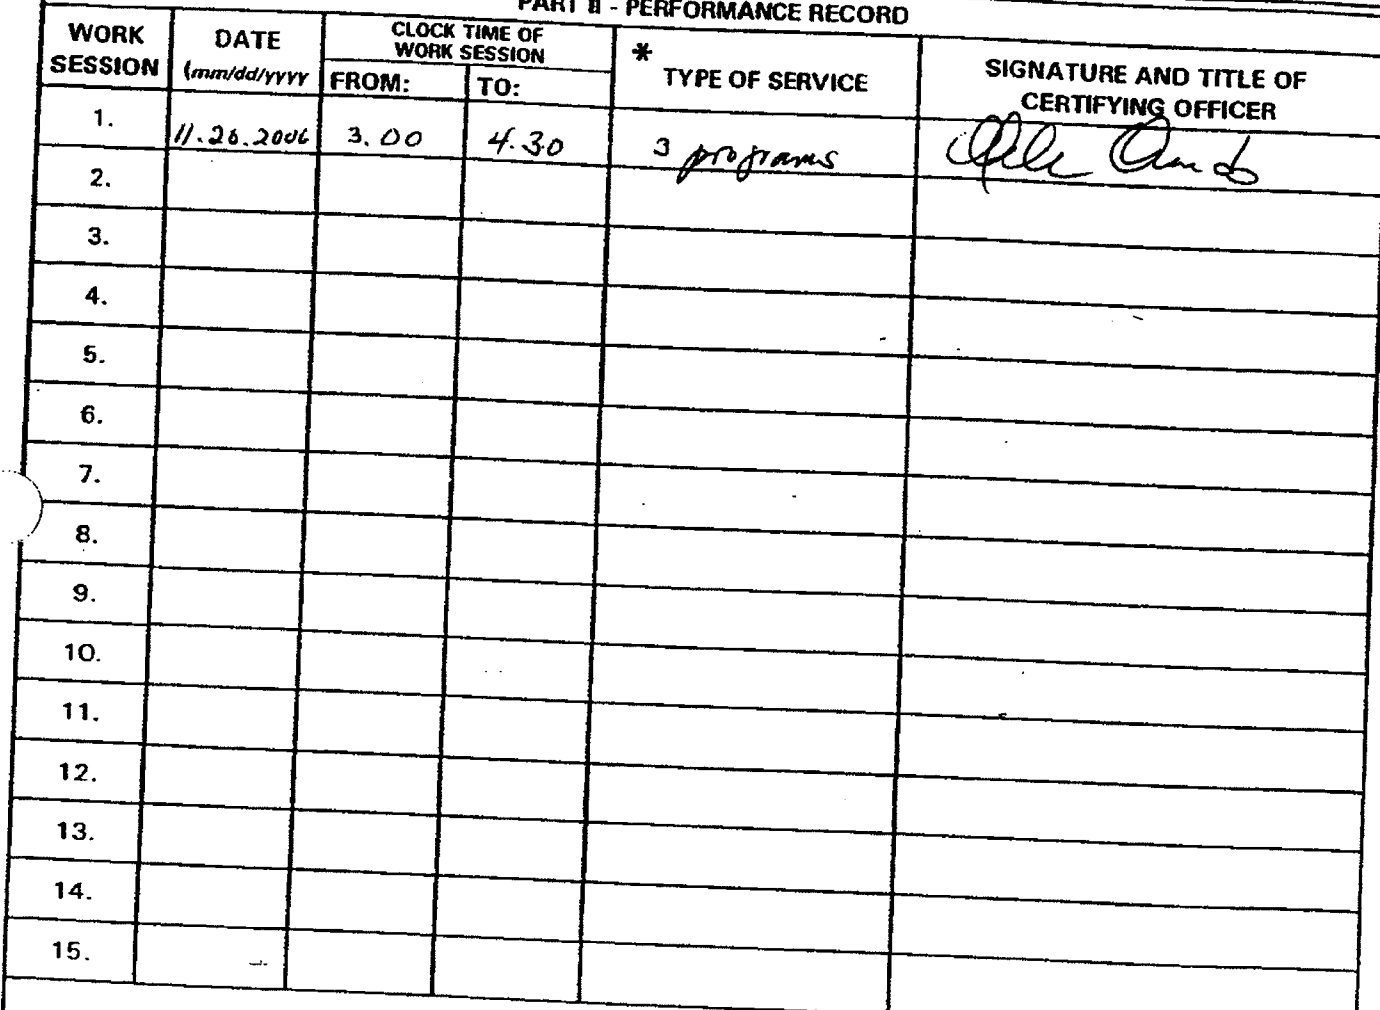 PART II - PERFORMANCE RECORD
WORK SESSION
DATE
(mm/dd/yyyy
CLOCK TIME OF
WORK SESSION
FROM:
TO:
*
TYPE OF SERVICE
SIGNATURE AND TITLE OF
CERTIFYING OFFICER
1. 11.26.2006 3.00 4.30 3 programs
2.
3.
4.
5.
6.
7.
8.
9.
10.
11.
12.
13.
14.
15.